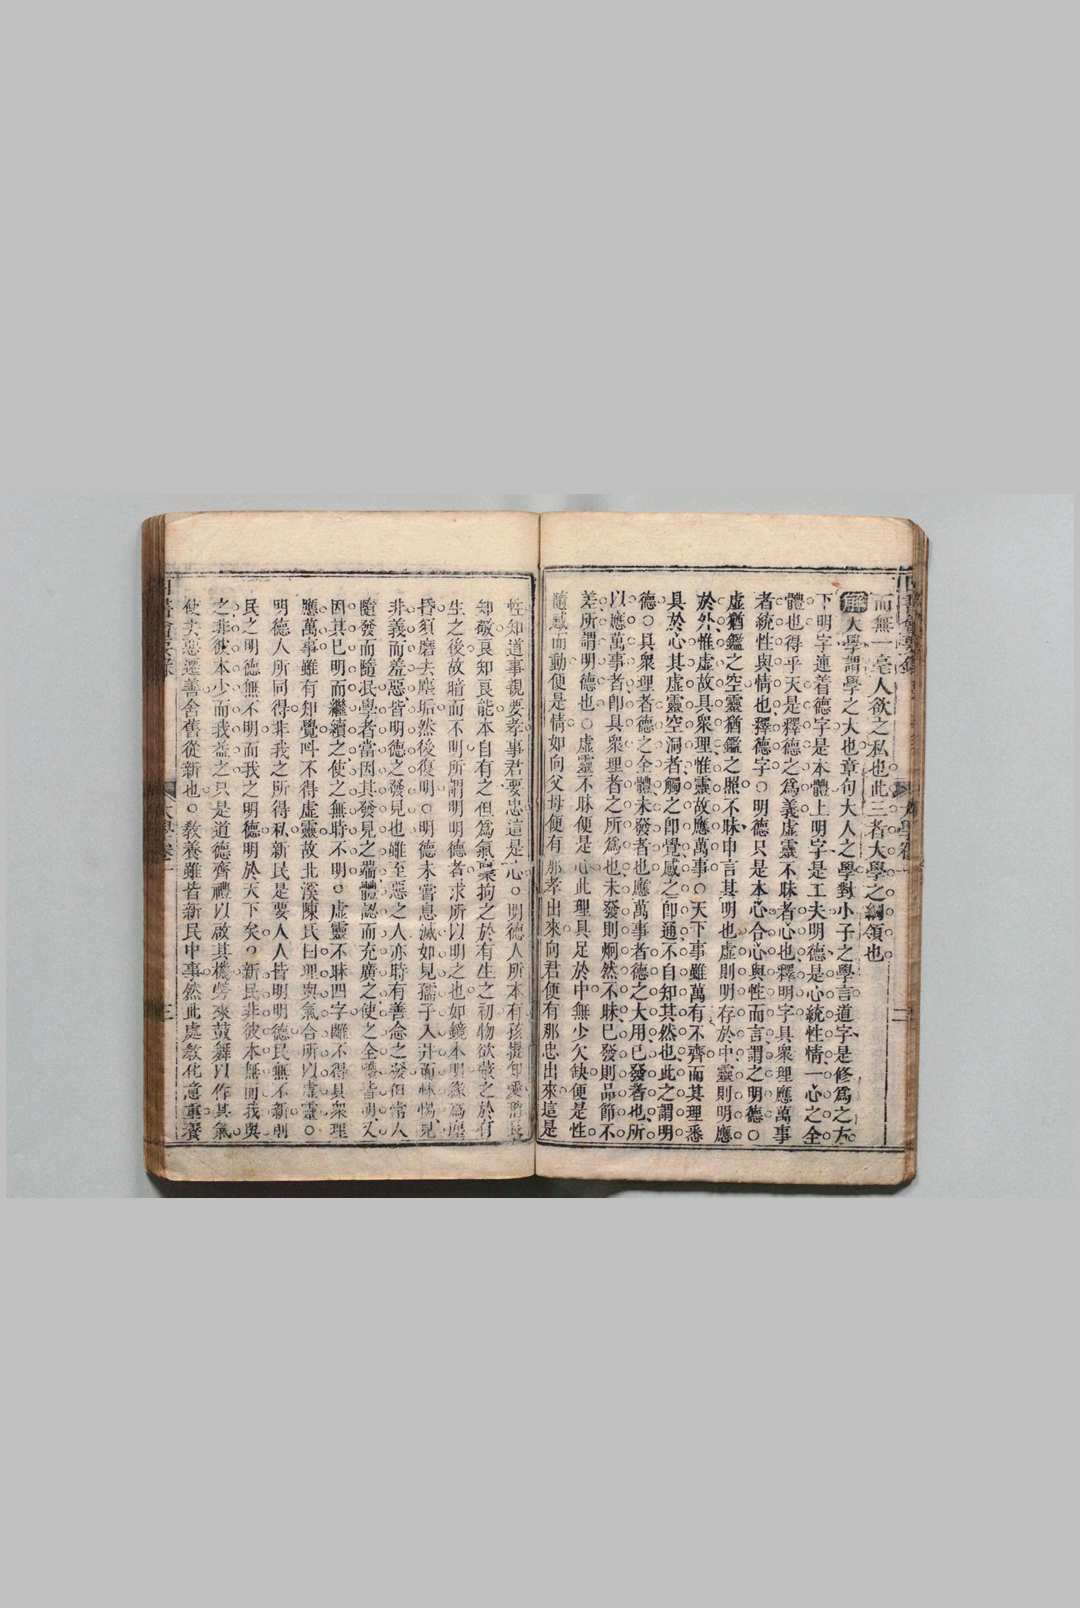 而無一毫人欲之私也此三者大學之綱領也
解大學謂學之大也章句大人之學對小子之學言道字是修為之方
下明字連着德字是本體上明字是工夫明德是心統性情一心之全
體也得乎天是釋德之爲義虛靈不昧者心也釋明字具衆理應萬事
者統性與情也釋德字○明德只是本心合心與性而言謂之明德○
虛猶鑑之空靈猶鑑之照不昧申言其明也虛則明存於中靈則明應
於外惟虛故具衆理惟靈故應萬事○天下事雖萬有不齊而其理悉
具於心其虛靈空洞者觸之卽覺感之卽通不自知其然也此之謂明
德○具衆理者德之全體未發者也應萬事者德之大用已發者也所
以應萬事者卽具衆理者之所爲也未發則炯然不昧已發則品節不
差所謂明德也○虛靈不昧便是心此理具足於中無少欠缺便是性
隨感而動便是情如向父母便有那孝出來向君便有那忠出來這是
性知道事親要孝事君要忠這是心○明德人所本有孩提卽愛
知敬良知良能本自有之但爲氣稟拘之於有生之初物欲蔽之於有
生之後故暗而不明所謂明明德者求所以明之也如鏡本明
昏須磨去塵垢然後復明○明德未嘗息滅如見孺子入井而怵惕見
非義而羞惡皆明德之發見也雖至惡之人亦時有善念之發但常人
隨發而隨泯學者當因其發見之端體認而充廣之使之全體皆明又
因其已明而繼續之使之無時不明○虛靈不昧四字雖不得具衆理
應萬事雖有知覺呌不得虛靈故北溪陳氏曰理與氣合所以虛靈○
明德人所同得非我之所得私新民是要人人皆明明德民無不新則
民之明德無不明而我之明德明於天下矣○新民非彼本無而我與
之非彼本少而我益之只是道德齊禮以啟其機勞來鼓舞以作其氣
使去惡遷善舍舊從新也○敎養雖皆新民中事然此處敎化意重養
大學卷一
二
三